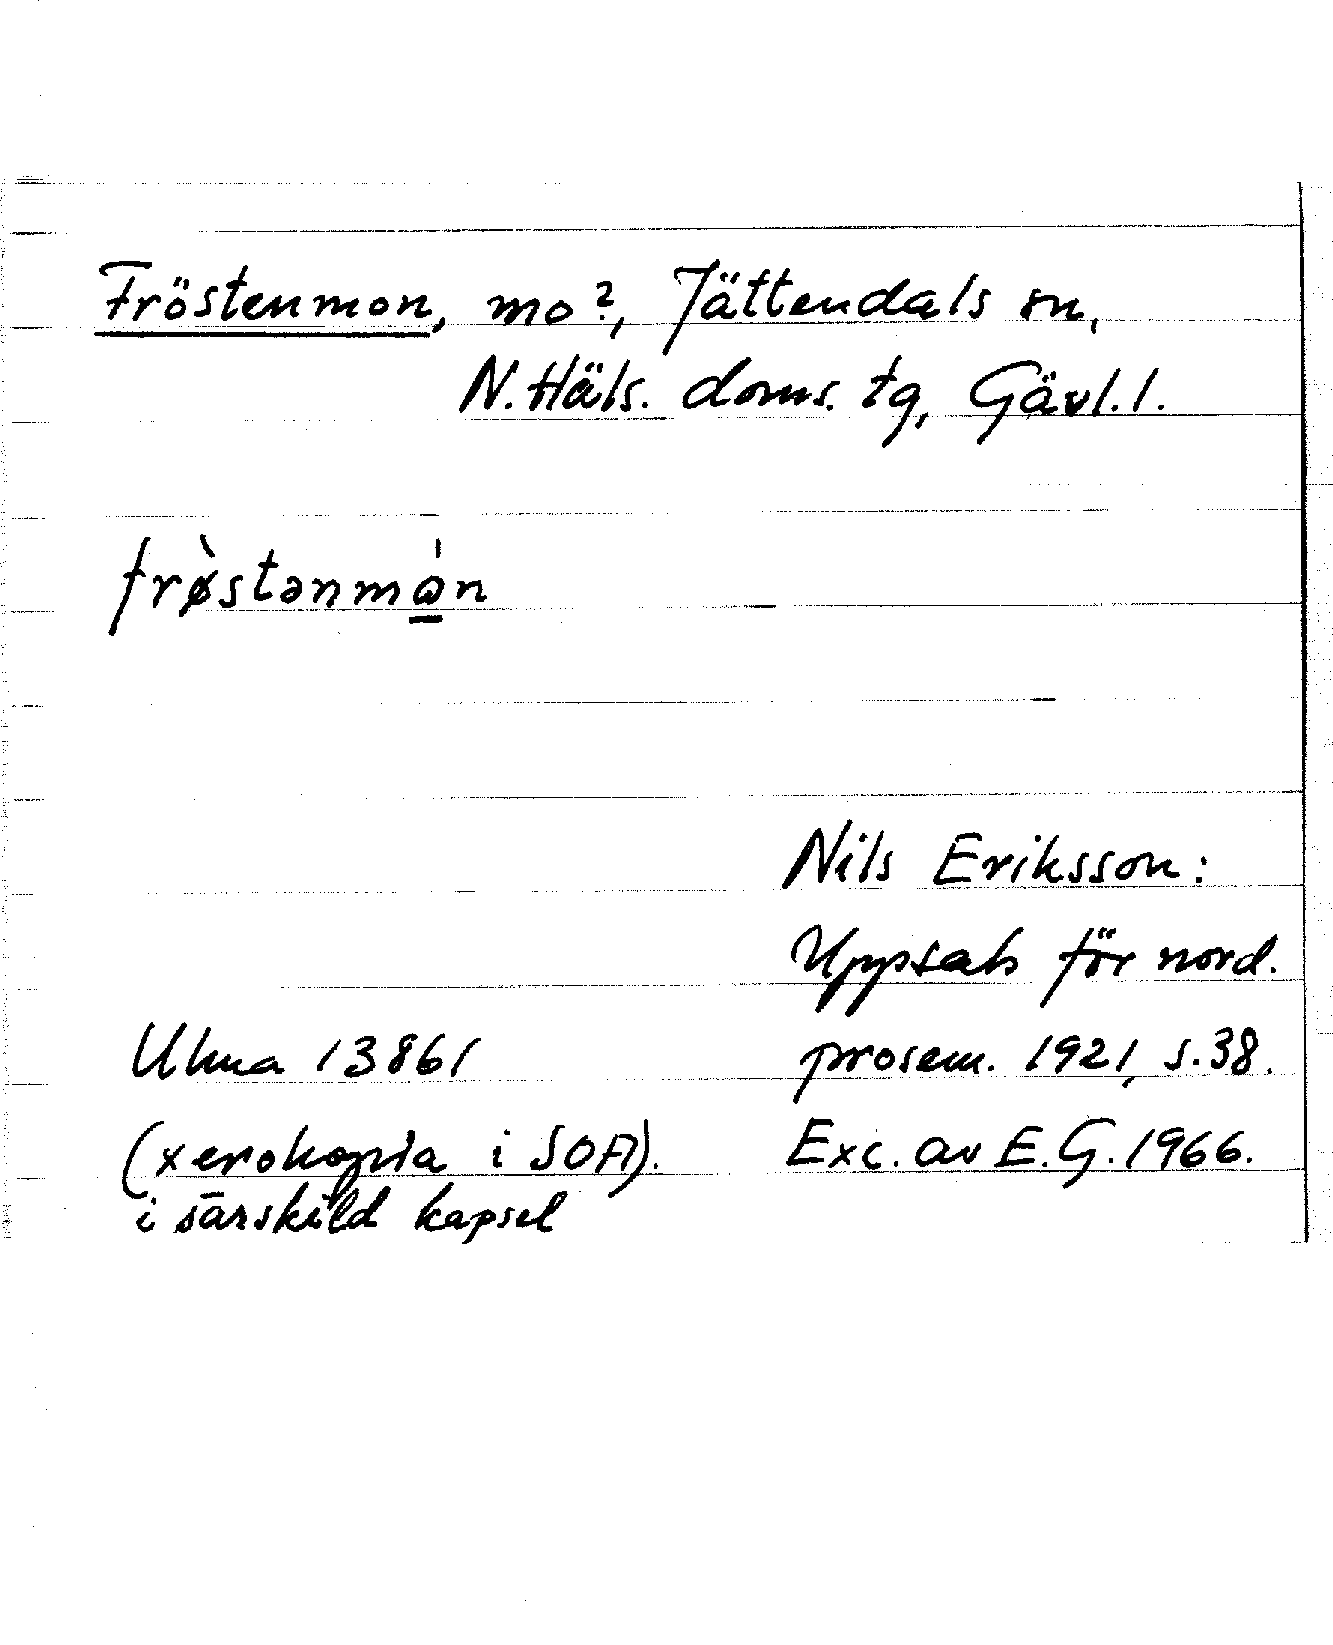 Fröstenmon, mo?, Jättendals sn,
N. Häls. doms. tg, Gävl. l.
frø̀stənmω̲̍n
Nils Eriksson:
Uppsats för nord.
Ulma 13861
prosem. 1921, s. 38.
(xerokopia i SOA).
Exc. av E. G. 1966.
i särskild kapsel